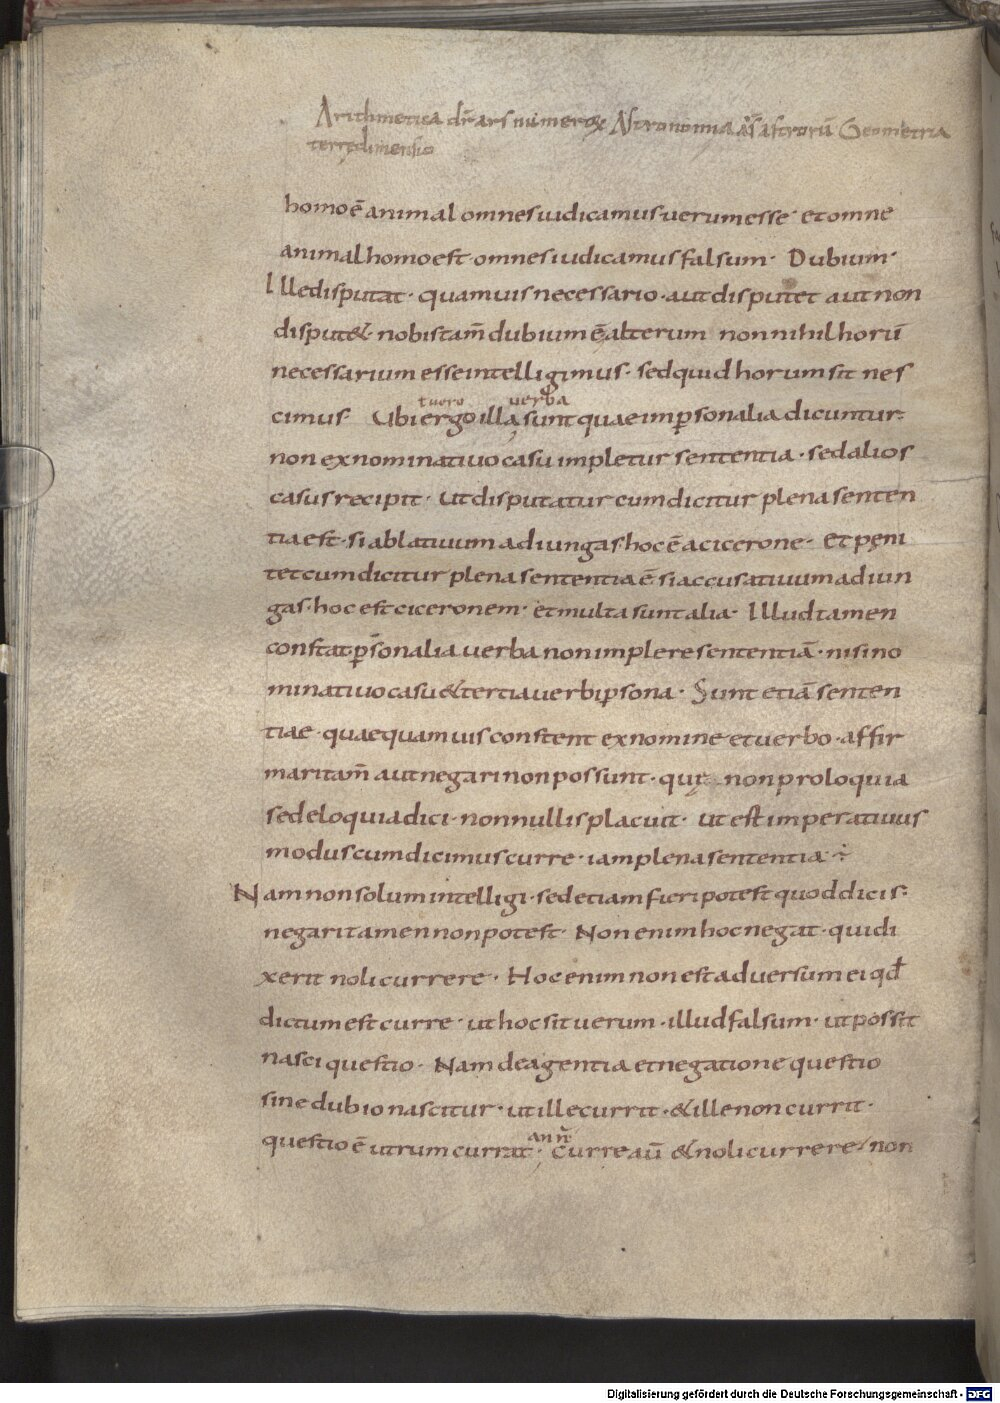 Arithmetica dr̄ ars numerorꝝ Astronomia ars astrorū Geometria
terrę dimensio
homo ē animal omnes iudicamus uerum esse · et omne
animal homo est · omnes iudicamus falsum · Dubium ·
Ille disputat · quamuis necessario · aut disputet aut non
disput& · nobis tam̄ dubium ē alterum non nihil horū
necessarium esse intelligimus · sed quid horum sit nes
cimus Ubi ergo illa sunt quae imꝑsonalia dicuntur ·
uero uerba
non ex nominatiuo casu impletur sententia · sed alios
casus recipit · Ut disputatur cum dicitur plena senten
tia est · si ablatiuum adiungas hoc ē a cicerone · Et pęni
tet cum dicitur plena sententia ē si accusatiuum adiun
gas · hoc est ciceronem · et multa sunt alia · Illud tamen
constat ꝑsonalia uerba non implere sententiā · nisi no
minatiuo casu & tertia uerbi ꝑsona · Sunt etiā senten
tiae · quae quamuis constent ex nomine et uerbo · affir
mari tam̄ aut negari non possunt · quę non proloquia
sed eloquia dici · non nullis placuit · ut est imperatiuus
modus cum dicimus curre · iam plena sententia ÷
Nam non solum intelligi · sed etiam fieri potest quod dicis ·
negari tamen non potest · Non enim hoc negat · qui di
xerit noli currere · Hoc enim non est aduersum ei qđ
dictum est curre · ut hoc sit uerum · illud falsum · ut possit
nasci questio · Nam de agentia et negatione questio
sine dubio nascitur · ut ille currit · & ille non currit ·
an ñ
questio ē utrum currat · Curre aū & noli currere / non